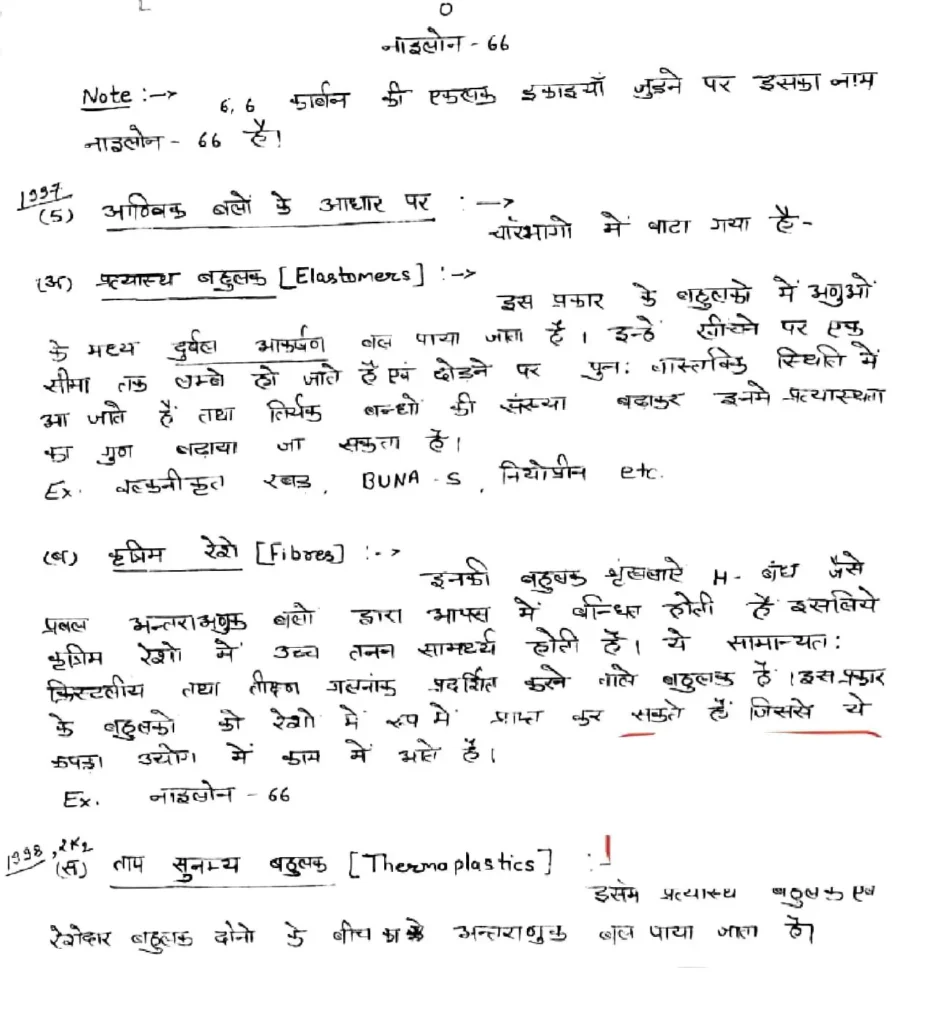 O
नाइलोन - 66
Note :-> 6, 6 कार्बन की एकलक इकाइयाँ जुड़ने पर इसका नाम
नाइलोन - 66 है।
1997
(5) आण्विक बलों के आधार पर :->
चारभागो में बाटा गया है-
(अ) प्रत्यास्थ बहुलक [Elastomers] :->
इस प्रकार के बहुलको में अणुओं
के मध्य दुर्बल आकर्षण बल पाया जाता है। इन्हे खींचने पर एक
सीमा तक लम्बे हो जाते है एवं छोड़ने पर पुनः वास्तविक स्थिति में
आ जाते हैं तथा तिर्यक बन्धो की संख्या बढाकर इनमे प्रत्यास्थता
का गुण बढ़ाया जा सकता है।
Ex. वल्कनीकृत रबड़, BUNA-S, नियोप्रीन etc.
(ब) कृत्रिम रेशे [Fibres] :->
इनकी बहुलक श्रृंखलाऐ H- बंध जैसे
प्रबल अन्तराअणुक बलो द्वारा आपस में बन्धित होती है इसलिये
कृत्रिम रेशो में उच्च तनन सामर्थ्य होती है। ये सामान्यतः
क्रिस्टलीय तथा तीक्ष्ण गलनांक प्रदर्शित करने वाले बहुलक है। इस प्रकार
के बहुलको को रेशो में रुप में प्राप्त कर सकते हैं जिससे ये
कपड़ा उद्योग में काम में आते है।
Ex. नाइलोन - 66
1998, 2K2
(स) ताप सुनम्य बहुलक [Thermoplastics] :-
इसमे प्रत्यास्थ बहुलक एवं
रेशेदार बहुलक दोनो के बीच का अन्तराणुक बल पाया जाता है।